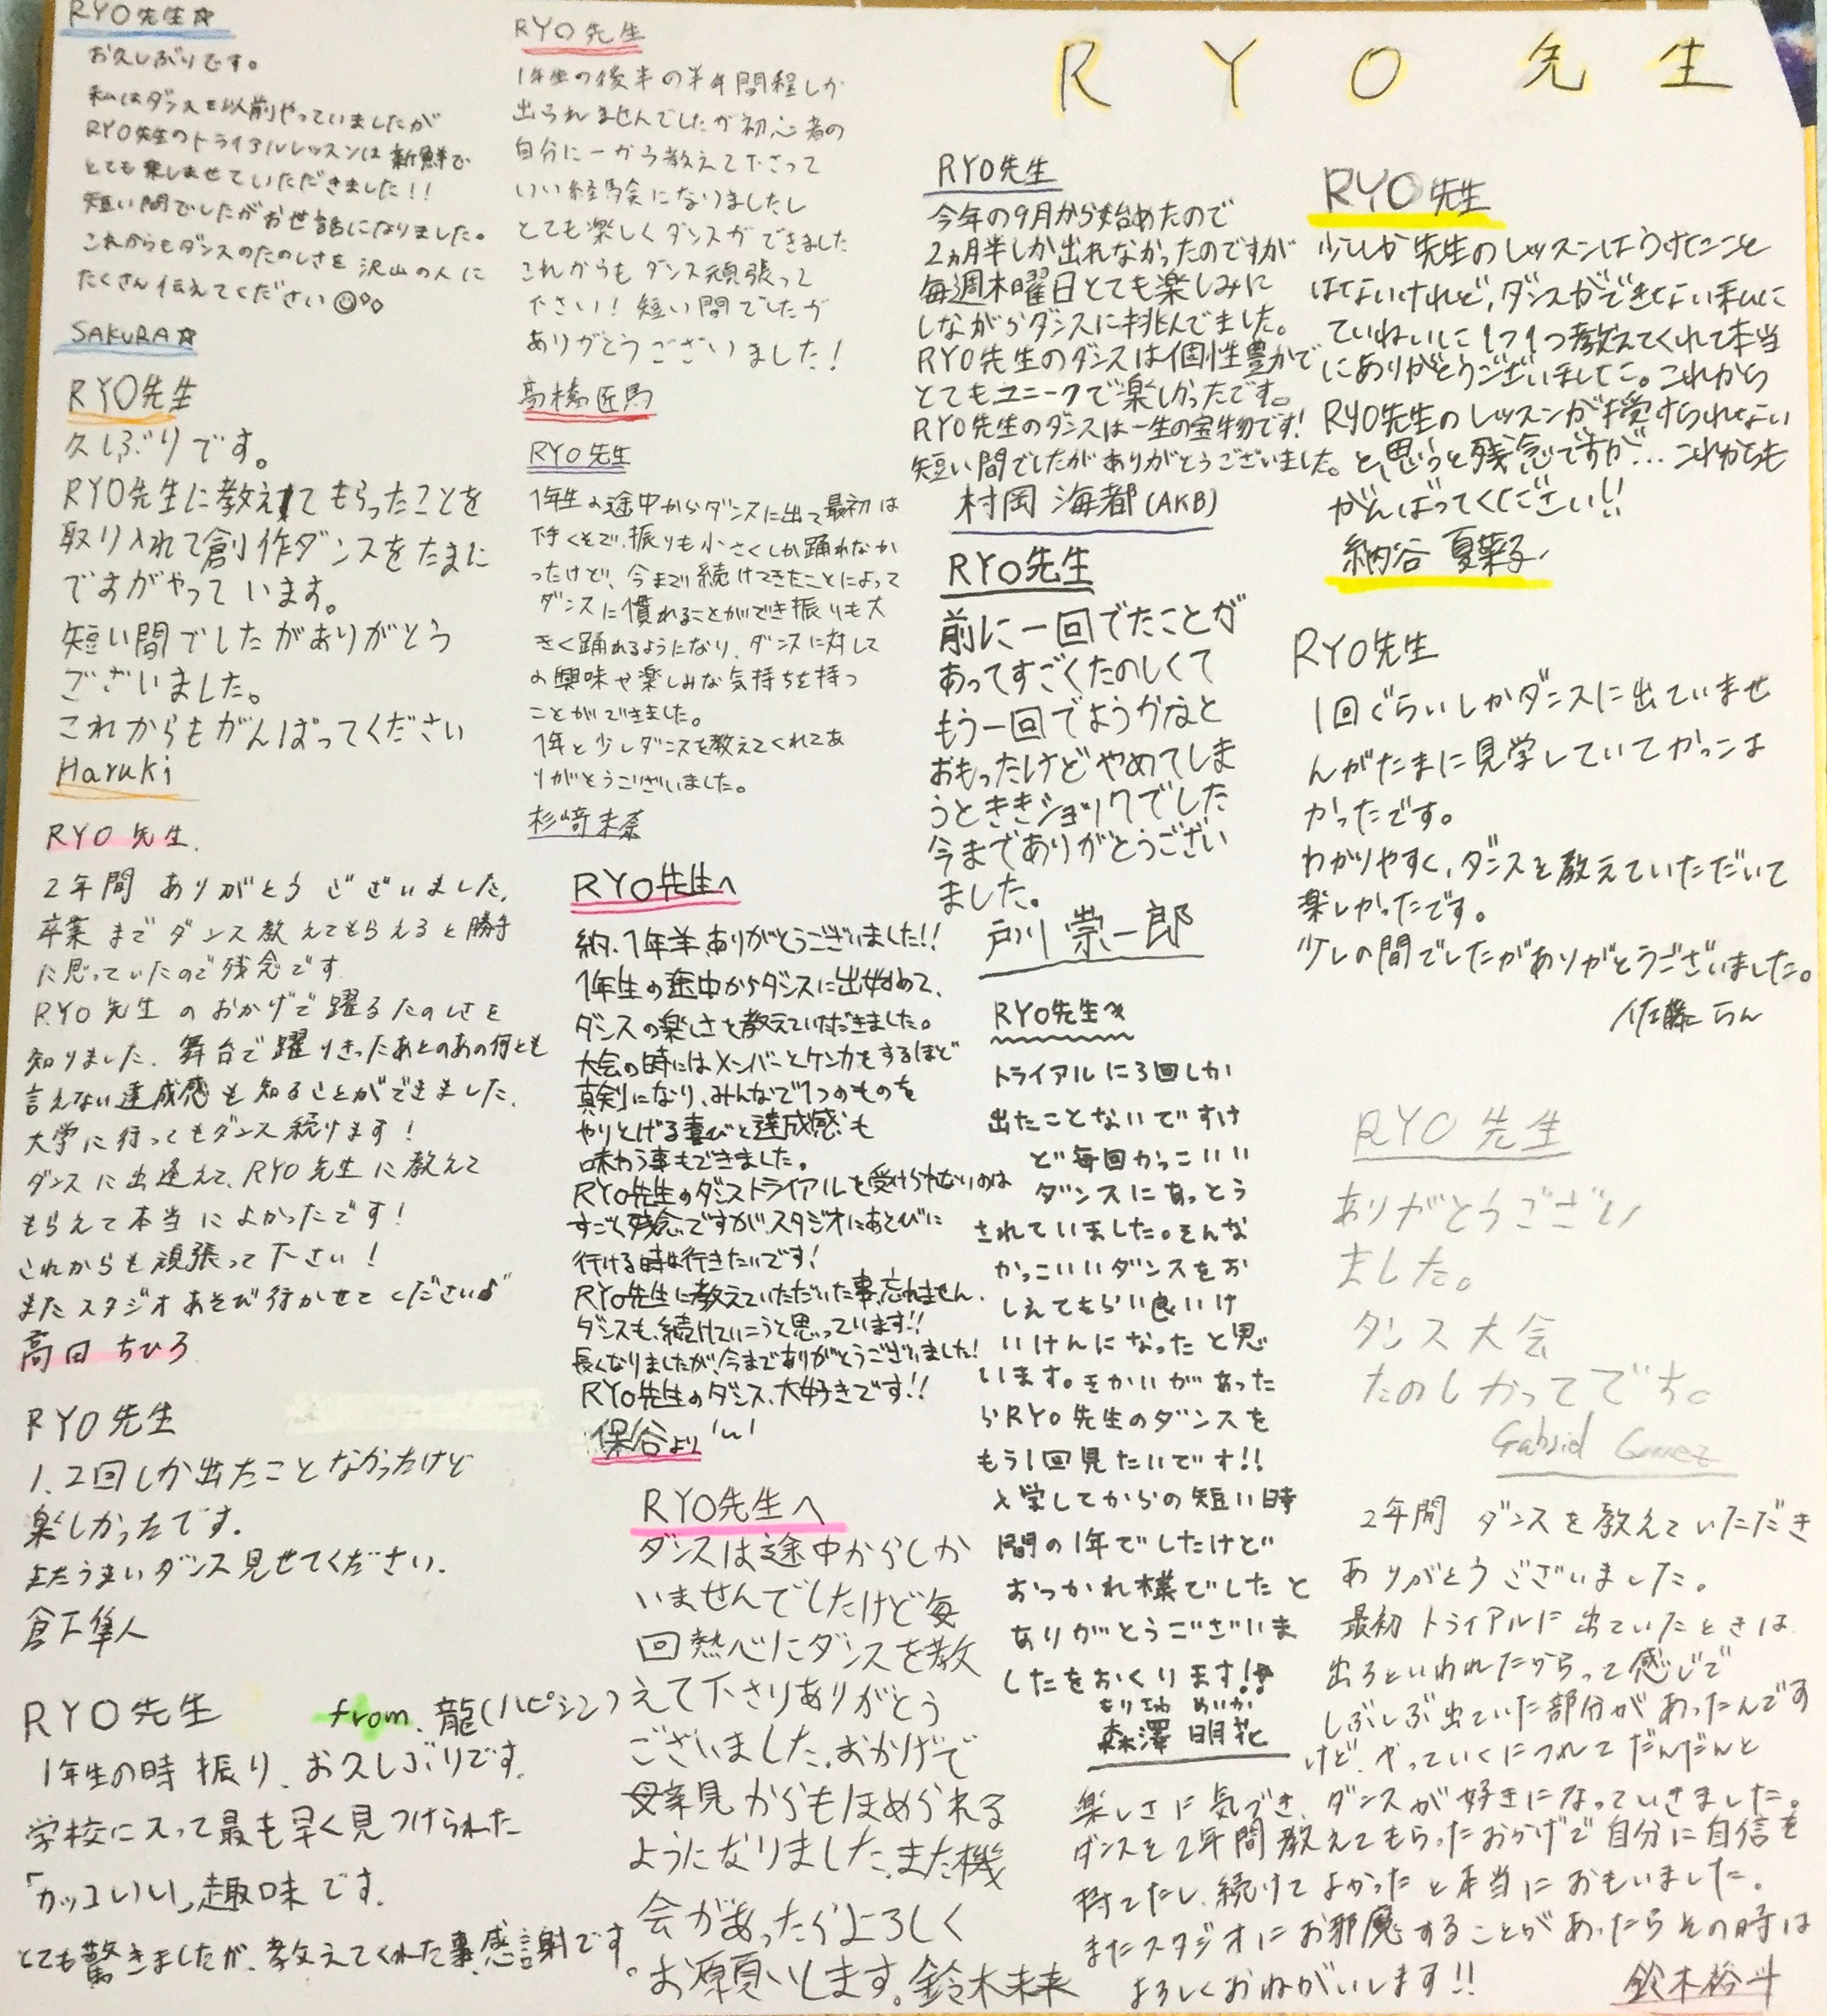 RYO先生
RYO先生☆
お久しぶりです。
私はダンスを以前やっていましたが
RYO先生のトライアルレッスンは新鮮で
とても楽しませていただきました!!
短い間でしたがお世話になりました。
これからもダンスのたのしさを沢山の人に
たくさん伝えてください
SAKURA☆
RYO先生
久しぶりです。
RYO先生に教えてもらったことを
取り入れて創作ダンスをたまに
ですがやっています。
短い間でしたがありがとう
ございました。
これからもがんばってください
Haruki
RYO先生
2年間 ありがとう ございました.
卒業 まで ダンス 教えてもらえると勝手
に思っていたので残念です
RYO 先生 のおかげで躍るたのしさを
知りました. 舞台で躍りきったあとのあの何とも
言えない達成感も知ることができました.
大学に行ってもダンス続けます!
ダンスに出逢えて、RYO先生に教えて
もらえて本当によかったです!
これからも頑張って下さい!
またスタジオあそび行かせてください♪
高田 ちひろ
RYO先生
1、2回しか出たことなかったけど
楽しかったです.
またうまいダンス見せてください.
倉下隼人
RYO先生 from. 龍(ハピシン)
1年生の時振り、お久しぶりです.
学校に入って最も早く見つけられた
「カッコいい」趣味です.
とても驚きましたが、教えてくれた事、感謝です。
RYO先生
1年生の後半の半年間程しか
出られませんでしたが初心者の
自分に一から教えて下さって
いい経験になりましたし
とても楽しくダンスができました
これからもダンス頑張って
下さい! 短い間でしたが
ありがとうございました!
高橋匠馬
RYO先生
1年生の途中からダンスに出て最初は
下手くそで、振りも小さくしか踊れなか
ったけど、今まで続けてきたことによって
ダンスに慣れることができ振りも大
きく踊れるようになり、ダンスに対して
の興味や楽しみな気持ちを持つ
ことができました。
1年と少しダンスを教えてくれてあ
りがとうございました。
杉崎未奈
RYO先生へ
約、1年半、ありがとうございました!!
1年生の途中からダンスに出始めて、
ダンスの楽しさを教えていただきました。
大会の時にはメンバーとケンカをするほど
真剣になり、みんなで1つのものを
やりとげる喜びと達成感も
味わう事もできました。
RYO先生のダンストライアルを受けられないのは
すごく残念ですが、スタジオにあそびに
行ける時は行きたいです!
RYO先生に教えていただいた事、忘れません.
ダンスも、続けていこうと思っています!!
長くなりましたが、今までありがとうございました!
RYO先生のダンス、大好きです!!
保谷より
RYO先生へ
ダンスは途中からしか
いませんでしたけど毎
回熱心にダンスを教
えて下さりありがとう
ございました.おかげで
母親からもほめられる
ようになりました.また機
会があったらよろしく
お願いします。鈴木未来
RYO先生
今年の9月から始めたので
2ヵ月半しか出れなかったのですが
毎週木曜日とても楽しみに
しながらダンスに挑んでました。
RYO先生のダンスは個性豊かで
とてもユニークで楽しかったです。
RYO先生のダンスは一生の宝物です!
短い間でしたがありがとうございました。
村岡 海都(AKB)
RYO先生
前に一回でたことが
あってすごくたのしくて
もう一回でようかなと
おもったけどやめてしま
うとききショックでした
今までありがとうござい
ました。
戸川 崇一郎
RYO先生へ
トライアルに3回しか
出たことないですけ
ど毎回かっこいい
ダンスにあっとう
されていました。そんな
かっこいいダンスをお
しえてもらい良いけ
いけんになったと思
います。きかいがあった
らRYO先生のダンスを
もう1回見たいです!!
入学してからの短い時
間の1年でしたけど
おつかれ様でしたと
ありがとうございま
したをおくります!!
もりさわ めいか
森澤 明花
RYO先生
少ししか先生のレッスンはうけたこと
はないけれど,ダンスができない私に
ていねいに1つ1つ教えてくれて本当
にありがとうございました。これから
RYO先生のレッスンが受けられない
と思うと残念ですが…これからも
がんばってください!!
納谷 夏菜子
RYO先生
1回ぐらいしかダンスに出ていませ
んがたまに見学していてかっこよ
かったです。
わかりやすく、ダンスを教えていただいて
楽しかったです。
少しの間でしたがありがとうございました。
佐藤 らん
RYO 先生
ありがとうござい
ました。
ダンス大会
たのしかってです。
Gabriel Gomez
2年間 ダンスを教えていただき
ありがとうございました。
最初トライアルに出ていたときは
出ろといわれたからって感じで
しぶしぶ出ていた部分があったんです
けど、やっていくにつれてだんだんと
楽しさに気づき、ダンスが好きになっていきました。
ダンスを2年間教えてもらったおかげで自分に自信を
持てたし、続けてよかったと本当におもいました。
またスタジオにお邪魔することがあったらその時は
よろしくおねがいします!!
鈴木裕斗